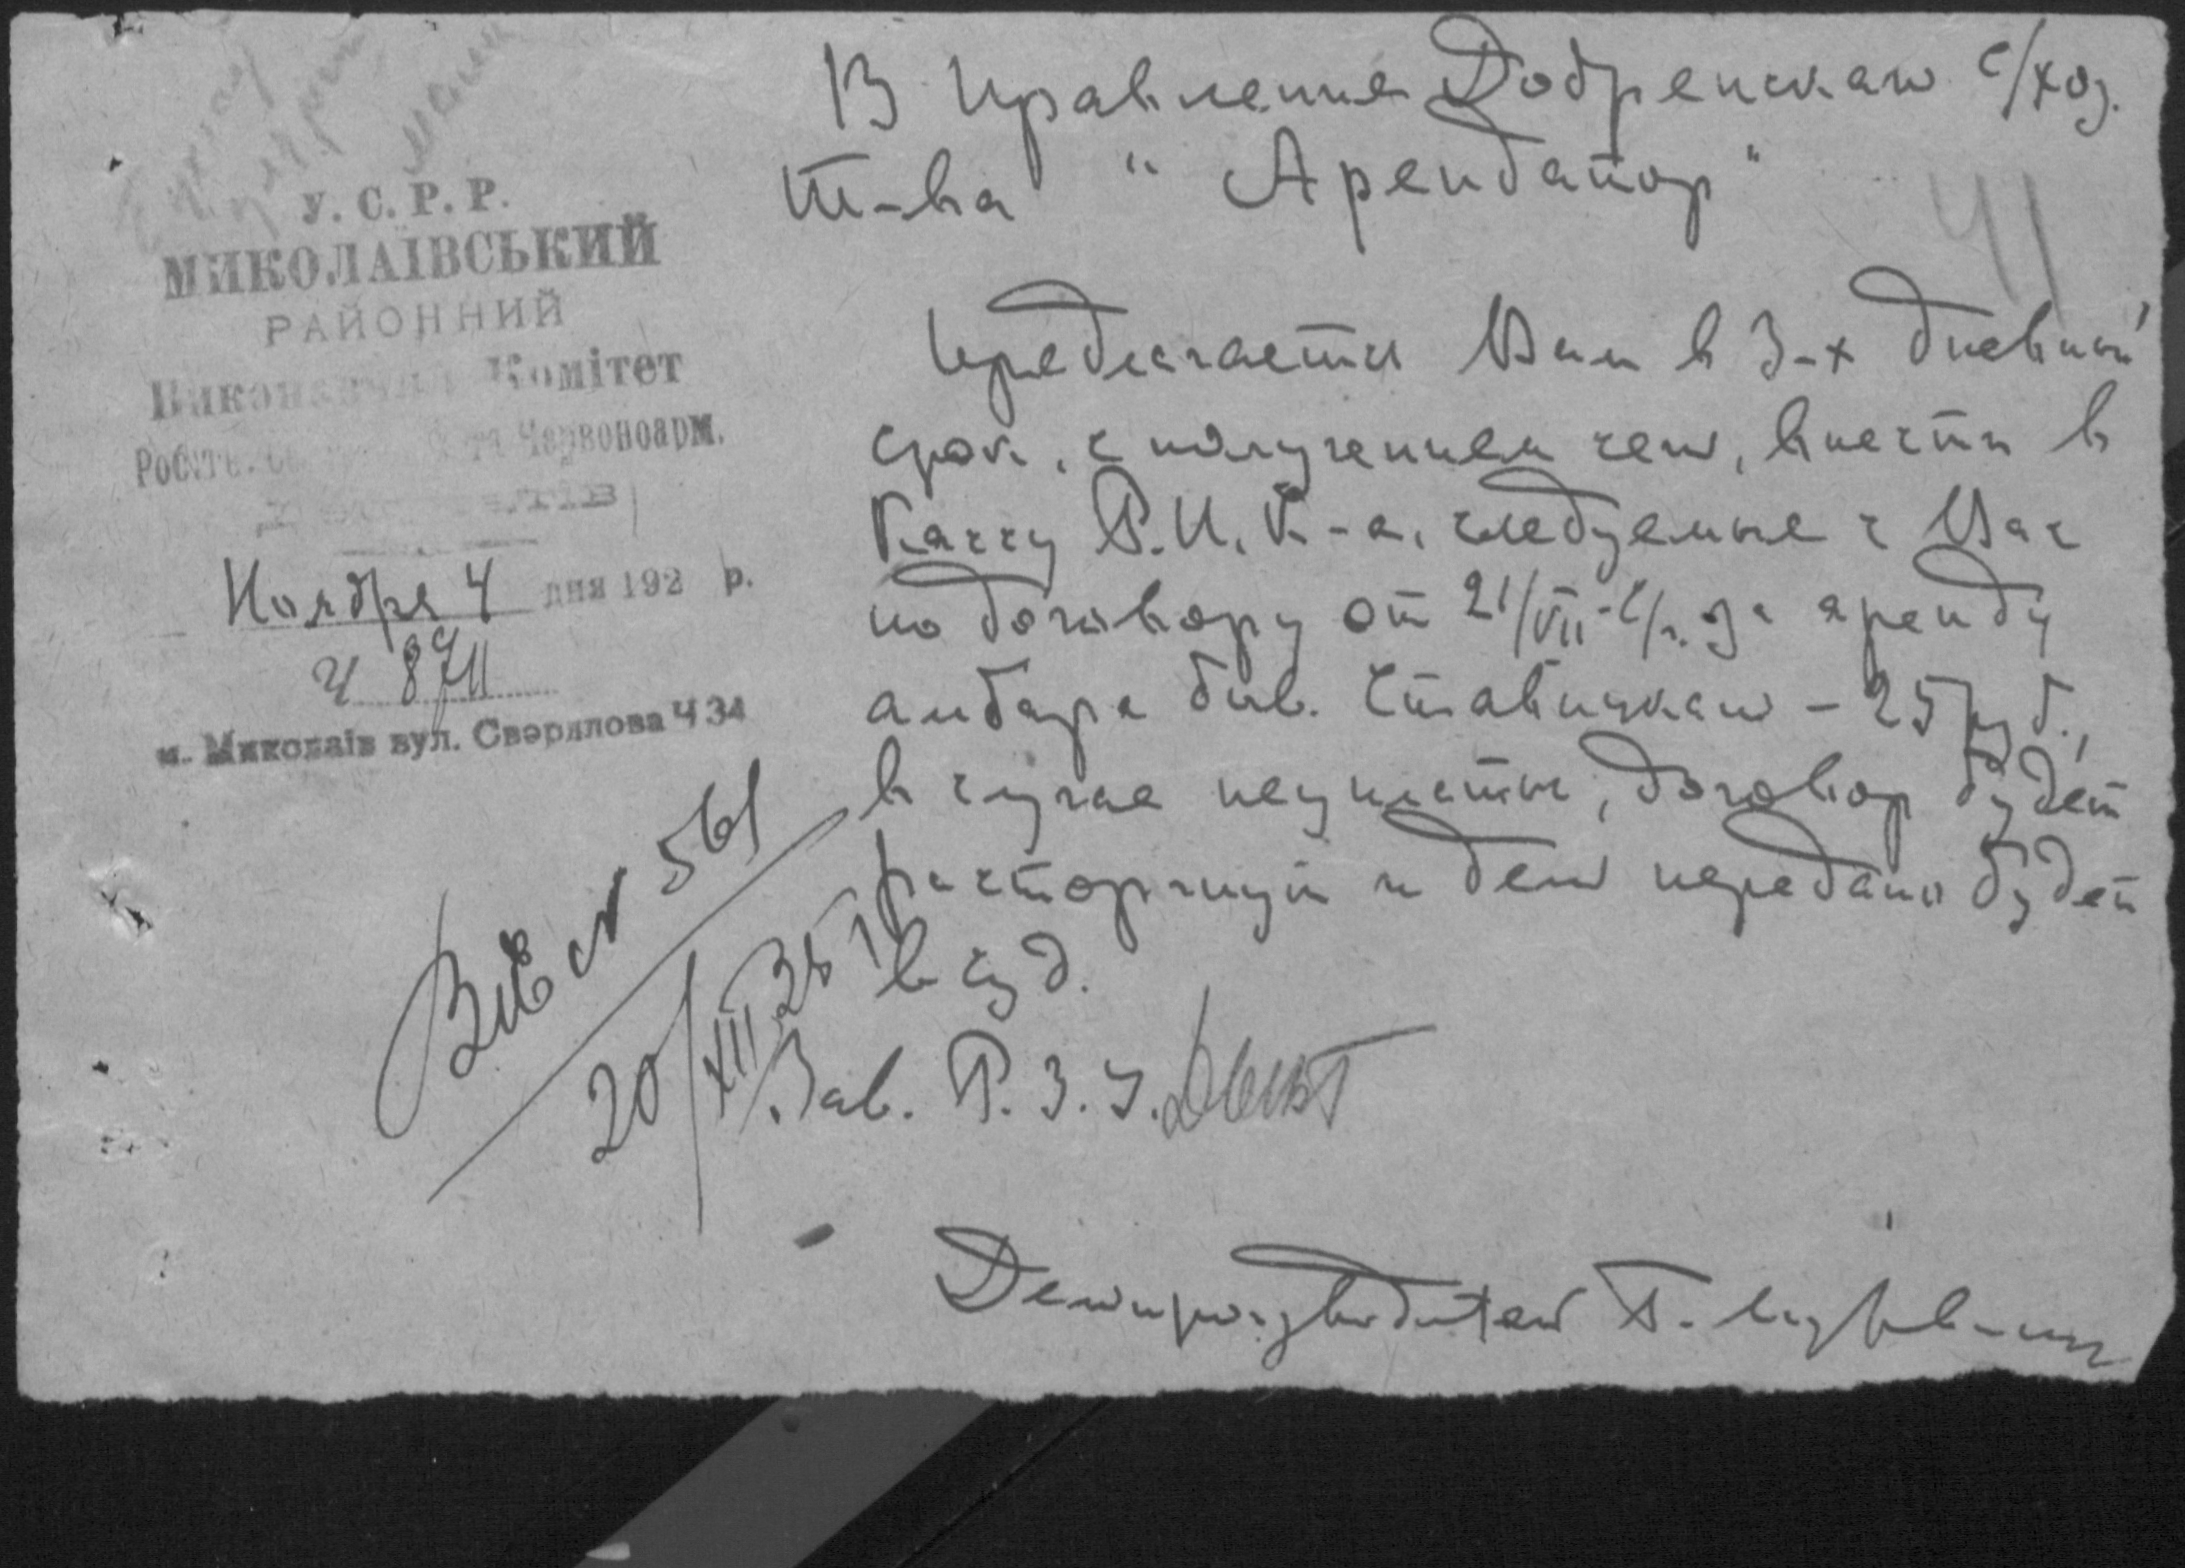 У. С. Р. Р.
МИКОЛАЇВСЬКИЙ
РАЙОННИЙ
Виконавчий Комітет
Червоноарм.
Ноября 4 дня 192 р.
Ч 8711
м. Миколаїв вул. Свердлова Ч 34
В Правление Добренскаго с/хоз.
Т-ва "Арендатор"
41
Предлагается Вам в 3-х дневный
срок, с получением сего, внести в
Кассу Р.И.К-а, следуемые с Вас
по договору от 21/VII-с/г. за аренду
амбара быв. Ставицкаго - 25 руб.,
в случае неуплаты, договор будет
расторгнут и дело передано будет
в суд.
Зав. Р.З.У.
Делопроизводитель
Вх № 561
20/XII 25 г.